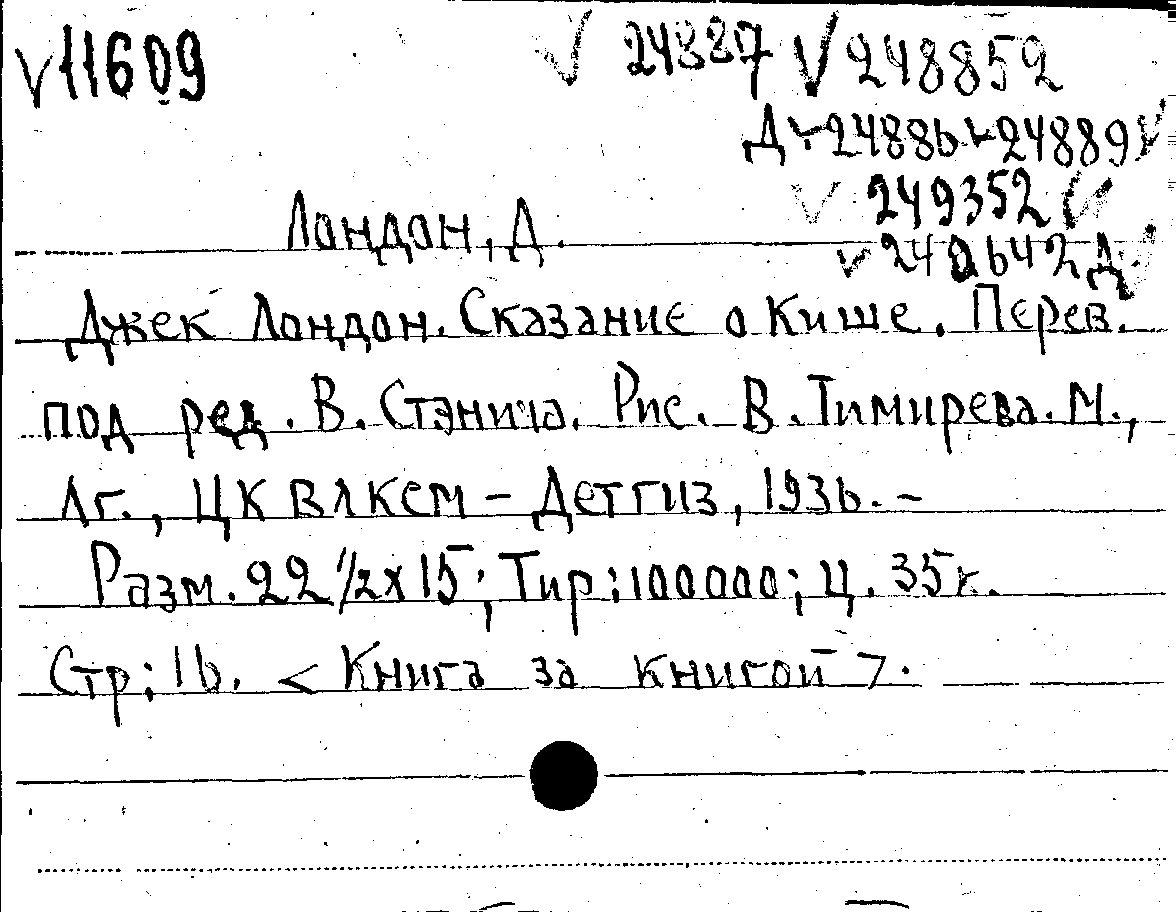 √11609 √ 24887 √248852
Д √24886 √24889√
√ 249352 √
√ 240642 Д√
Лондон, Д.
Джек Лондон. Сказание о Кише. Перев.
под ред. В. Станича. Рис. В. Тимирева. М.,
Лг., ЦК ВЛКСМ – Детгиз, 1936. –
Разм. 22 1/2 x 15; Тир: 100000; Ц. 35 к.
Стр: 16. < Книга за книгой >.